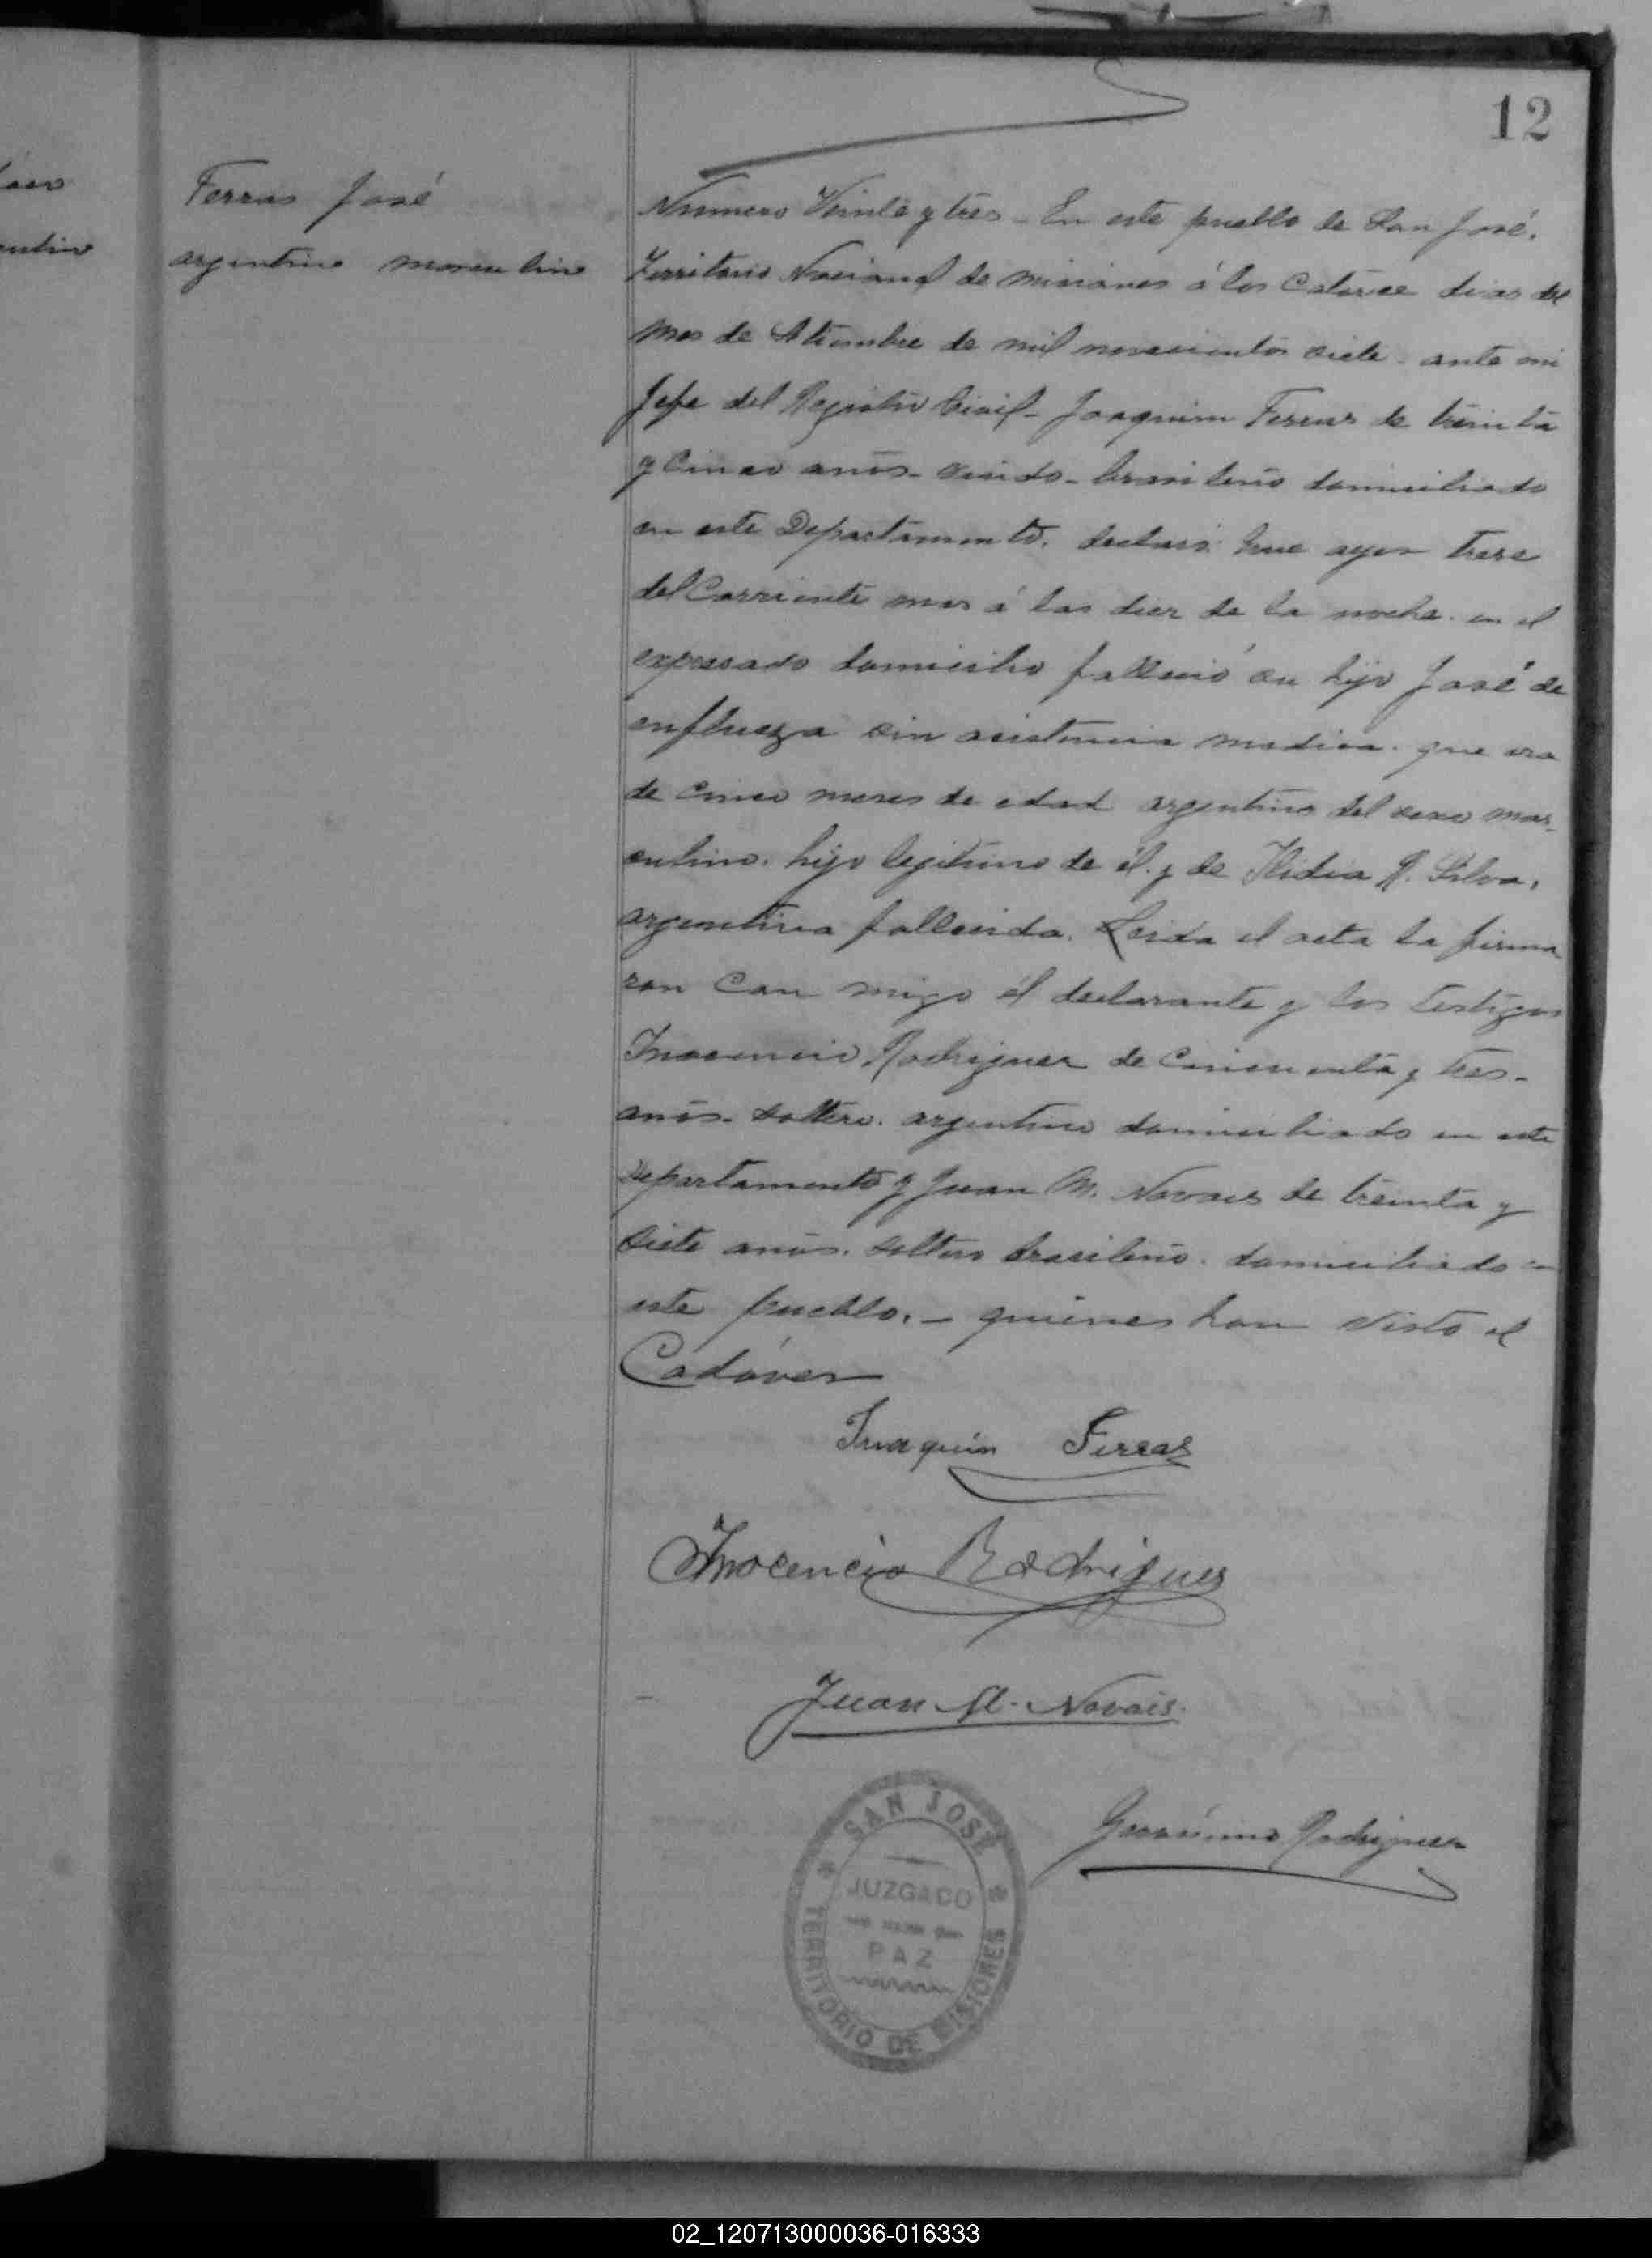 12
Ferras José
argentino masculino
Numero Veinte y tres - En este pueblo de San José,
Territorio Nacional de Misiones á los Catorce dias del
mes de Setiembre de mil novecientos siete - ante mi
Jefe del Registro Civil - Joaquim Ferras de treinta
y Cinco años - viudo - brasileño domiciliado
en este Departamento, declaró: Que ayer trese
del Corriente mes á las diez de la noche en el
expresado domicilio falleció su hijo José de
enflueza sin asistencia medica. que era
de Cinco meses de edad argentino del sexo mas-
culino, hijo legitimo de él y de Ilidia R. Silva,
argentina fallecida. Leida el acta la firma-
ron Con migo él declarante y los testigos
Inocencio Rodriguez de Cincuenta y tres -
años - soltero. argentino domiciliado en este
Departamento y Juan M. Novais de treinta y
siete años. soltero brasileño. domiciliado en
este pueblo. - quienes han visto el
Cadáver
Juaquin Ferras
Inocencio Rodrigues
Juan M. Novais.
Gerónimo Rodriguez
SAN JOSÉ
JUZGADO
PAZ
TERRITORIO DE MISIONES
02_120713000036-016333